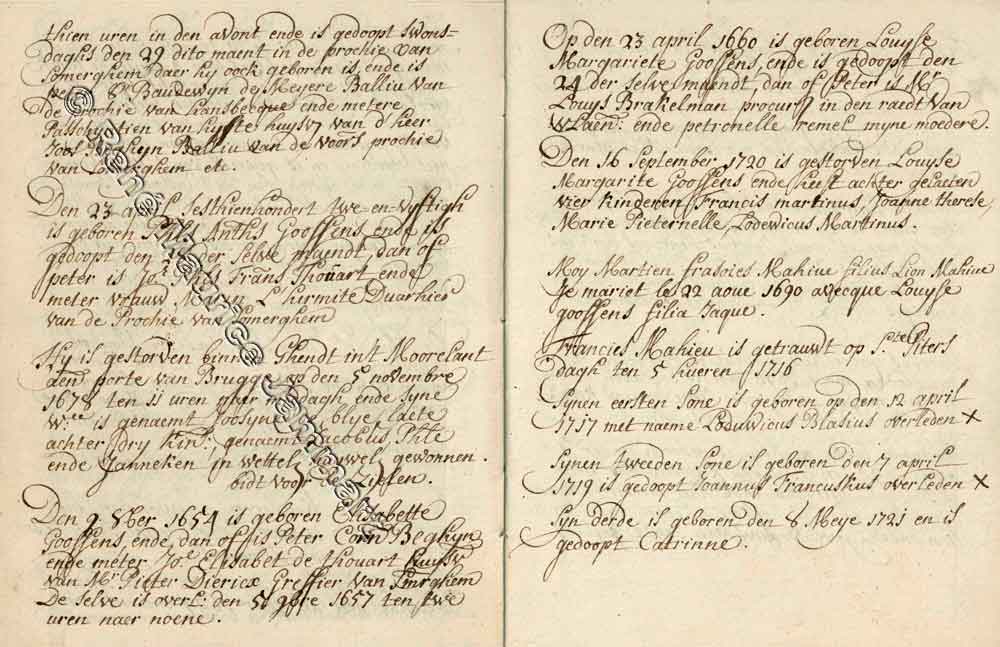 thien uren in den avont ende is gedoopt swons-
daghs den 29 dito maent in de prochie van
Somerghem daer hy oock geboren is, ende is
Baudewyn de Meyere Balliu van
de prochie van Liansbecque ende metere
van hysste huysv van d'heer
Joos Balliu van de voors prochie
van etc.
Den 23 sesthienhondert twe-en-vyftigh
is geboren Anths Goossens, ende is
gedoopt den der selve maendt, dan of
peter is Jor Frans Thouart, ende
meter vrauw L'hermite Duarhier
van de Prochie van Somerghem
Hy is gestorven binnen Ghendt in't Moorelant
aen porte van Brugge op den 5 novembre
1678 ten 11 uren daghs, ende syne
Wee is genaemt Joosyne blye, laete
achter dry kins: genaemt Jacobus, Phle
ende Janneken in wettel gewonnen.
bidt voor Zielen.
Den 9 Vber 1654 is geboren Elisabette
Goossens, ende, dan of sis Peter Corn Beghyn
ende meter Jor Elisabet de Thouart huysv
van Mr Pieter Diericx Greffier van Smrghem
De selve is overl: den 5 9bre 1657 ten twe
uren naer noene.
Op den 23 april 1660 is geboren Louyse
Margariete Goossens, ende is gedoopt den
24 der selve maendt, dan of Peter is Mr
Louys Brakelman procurr in den raedt van
Vlaen: ende petronelle remel myne moedere.
Den 16 September 1720 is gestorven Louyse
Margarite Goossens ende heeft achter gelaeten
vier kinderen Francis martinus, Joanne therese,
Marie Pieternelle, Lodewicus Martinus.
Moy Martien frasoies Mahiue filius Lion Mahiue
Je mariet le 22 aoue 1690 avecque Louyse
goossens filia Jaque.
Francies Mahieu is getrauwt op Ste Piters
dagh ten 5 hueren 1716
Synen eersten sone is geboren op den 12 april
1717 met naeme Loduwicus Blasius overleden x
Synen tweeden sone is geboren den 7 april
1719 is gedoopt Joannus Francuskus overleden x
Syn derde is geboren den 8 Meye 1721 en is
gedoopt Catrinne.